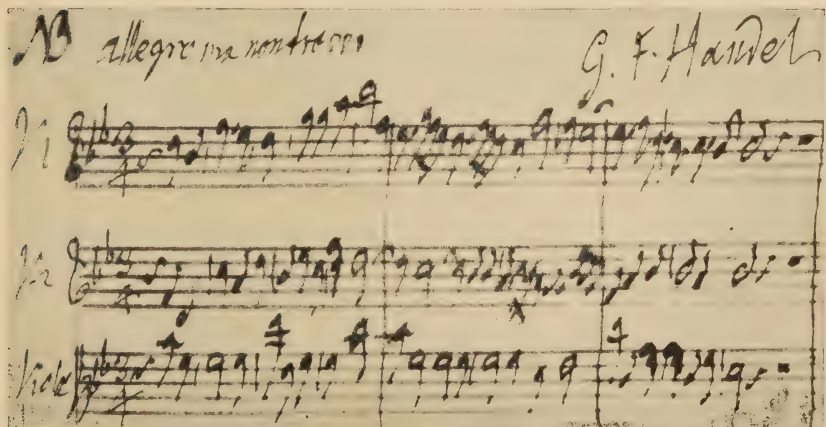 NB allegro ma non troppo G. F. Handel
V 1
V 2
Viola